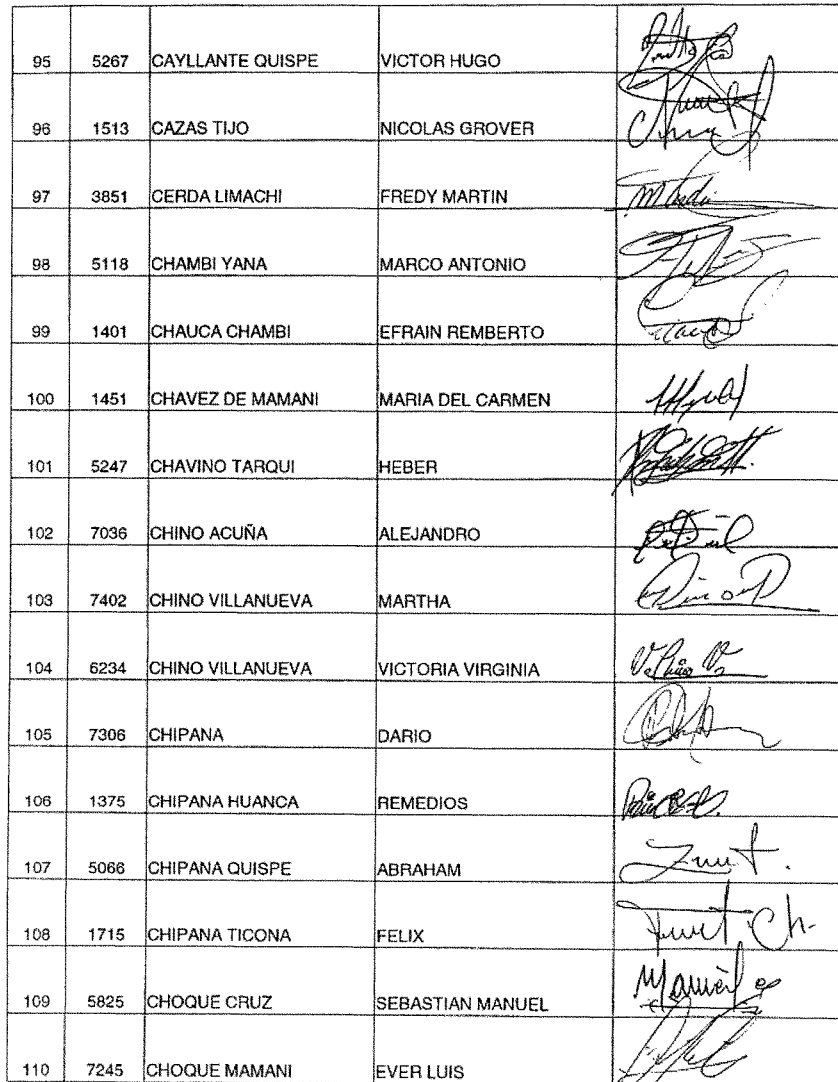 95 5267 CAYLLANTE QUISPE VICTOR HUGO
96 1513 CAZAS TIJO NICOLAS GROVER
97 3851 CERDA LIMACHI FREDY MARTIN
98 5118 CHAMBI YANA MARCO ANTONIO
99 1401 CHAUCA CHAMBI EFRAIN REMBERTO
100 1451 CHAVEZ DE MAMANI MARIA DEL CARMEN
101 5247 CHAVINO TARQUI HEBER
102 7036 CHINO ACUÑA ALEJANDRO
103 7402 CHINO VILLANUEVA MARTHA
104 6234 CHINO VILLANUEVA VICTORIA VIRGINIA
105 7306 CHIPANA DARIO
106 1375 CHIPANA HUANCA REMEDIOS
107 5066 CHIPANA QUISPE ABRAHAM
108 1715 CHIPANA TICONA FELIX
109 5825 CHOQUE CRUZ SEBASTIAN MANUEL
110 7245 CHOQUE MAMANI EVER LUIS